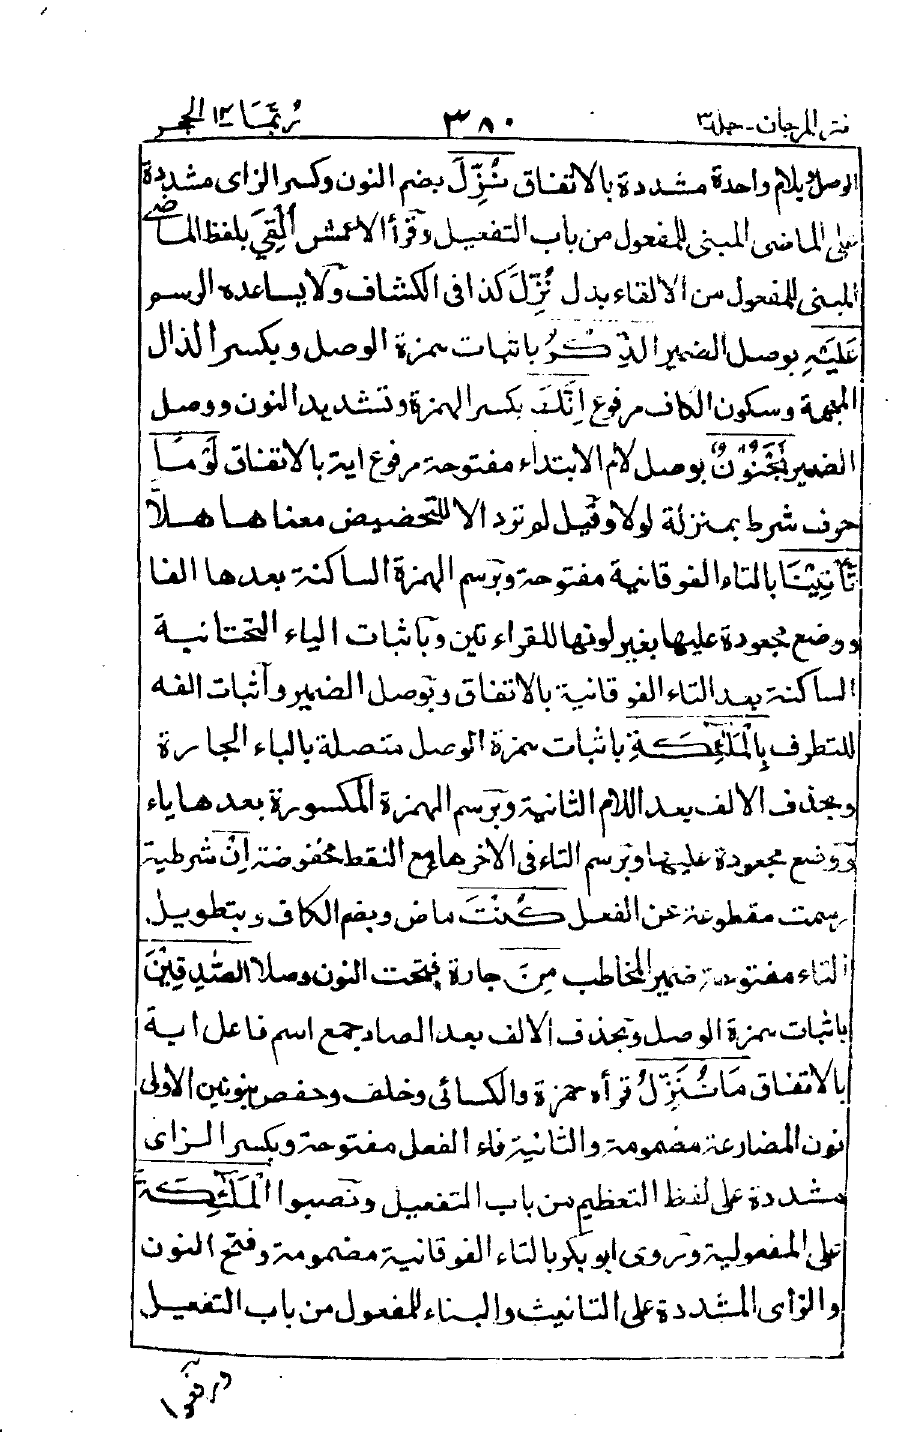 نثر المرجان - جلد ٣ ٣٨٠ رُبَمَا ١٤ الحجر
الوصل وبلام واحدة مشددة بالاتفاق نُزِّلَ بضم النون وكسر الزاى مشددة
على الماضى المبنى للمفعول من باب التفعيل وقرأ الاعمش اُلْقِيَ بلفظ الماضے
المبنى للمفعول من الالقاء بدل نُزِّلَ كذا فى الكشاف ولا يساعده الرسم
عَلَيْهِ بوصل الضمير الذِّكْرُ باثبات همزة الوصل وبكسر الذال
المعجمة وسكون الكاف مرفوع اِنَّكَ بكسر الهمزة وتشديد النون ووصل
الضمير لَمَجْنُوْنٌ بوصل لام الابتداء مفتوحة مرفوع اية بالاتفاق لَوْمَا
حرف شرط بمنزلة لولا وقيل لم ترد الا للتحضيض معناها هلّا
تَأْتِيْنَا بالتاء الفوقانية مفتوحة وبرسم الهمزة الساكنة بعدها الفا
ووضع مجعودة عليها بغير لونها للقراءتين وباثبات الياء التحتانية
الساكنة بعد التاء الفوقانية بالاتفاق وبوصل الضمير واثبات الفه
للتطرف بِالْمَلٰٓئِكَةِ باثبات همزة الوصل متصلة بالباء الجارة
وبحذف الالف بعد اللام الثانية وبرسم الهمزة المكسورة بعدها ياء
ووضع مجعودة عليها وبرسم التاء فى الاخر هاء مع النقط مخفوضة اِنْ شرطية
رسمت مقطوعة عن الفعل كُنْتَ ماض وبضم الكاف وبتطويل
التاء مفتوحة ضمير المخاطب مِنَ جارة فتحت النون وصلا الصّٰدِقِيْنَ
باثبات همزة الوصل وبحذف الالف بعد الصاد جمع اسم فاعل اية
بالاتفاق مَا نُنَزِّلُ قرأه حمزة والكسائى وخلف وحفص بنونين الاولى
نون المضارعة مضمومة والثانية فاء الفعل مفتوحة وبكسر الزاى
مشددة على لفظ التعظيم من باب التفعيل ونصبوا الْمَلٰٓئِكَةَ
على المفعولية وروى ابو بكر بالتاء الفوقانية مضمومة وفتح النون
والزاى المشددة على التانيث والبناء للمفعول من باب التفعيل
ورفعوا